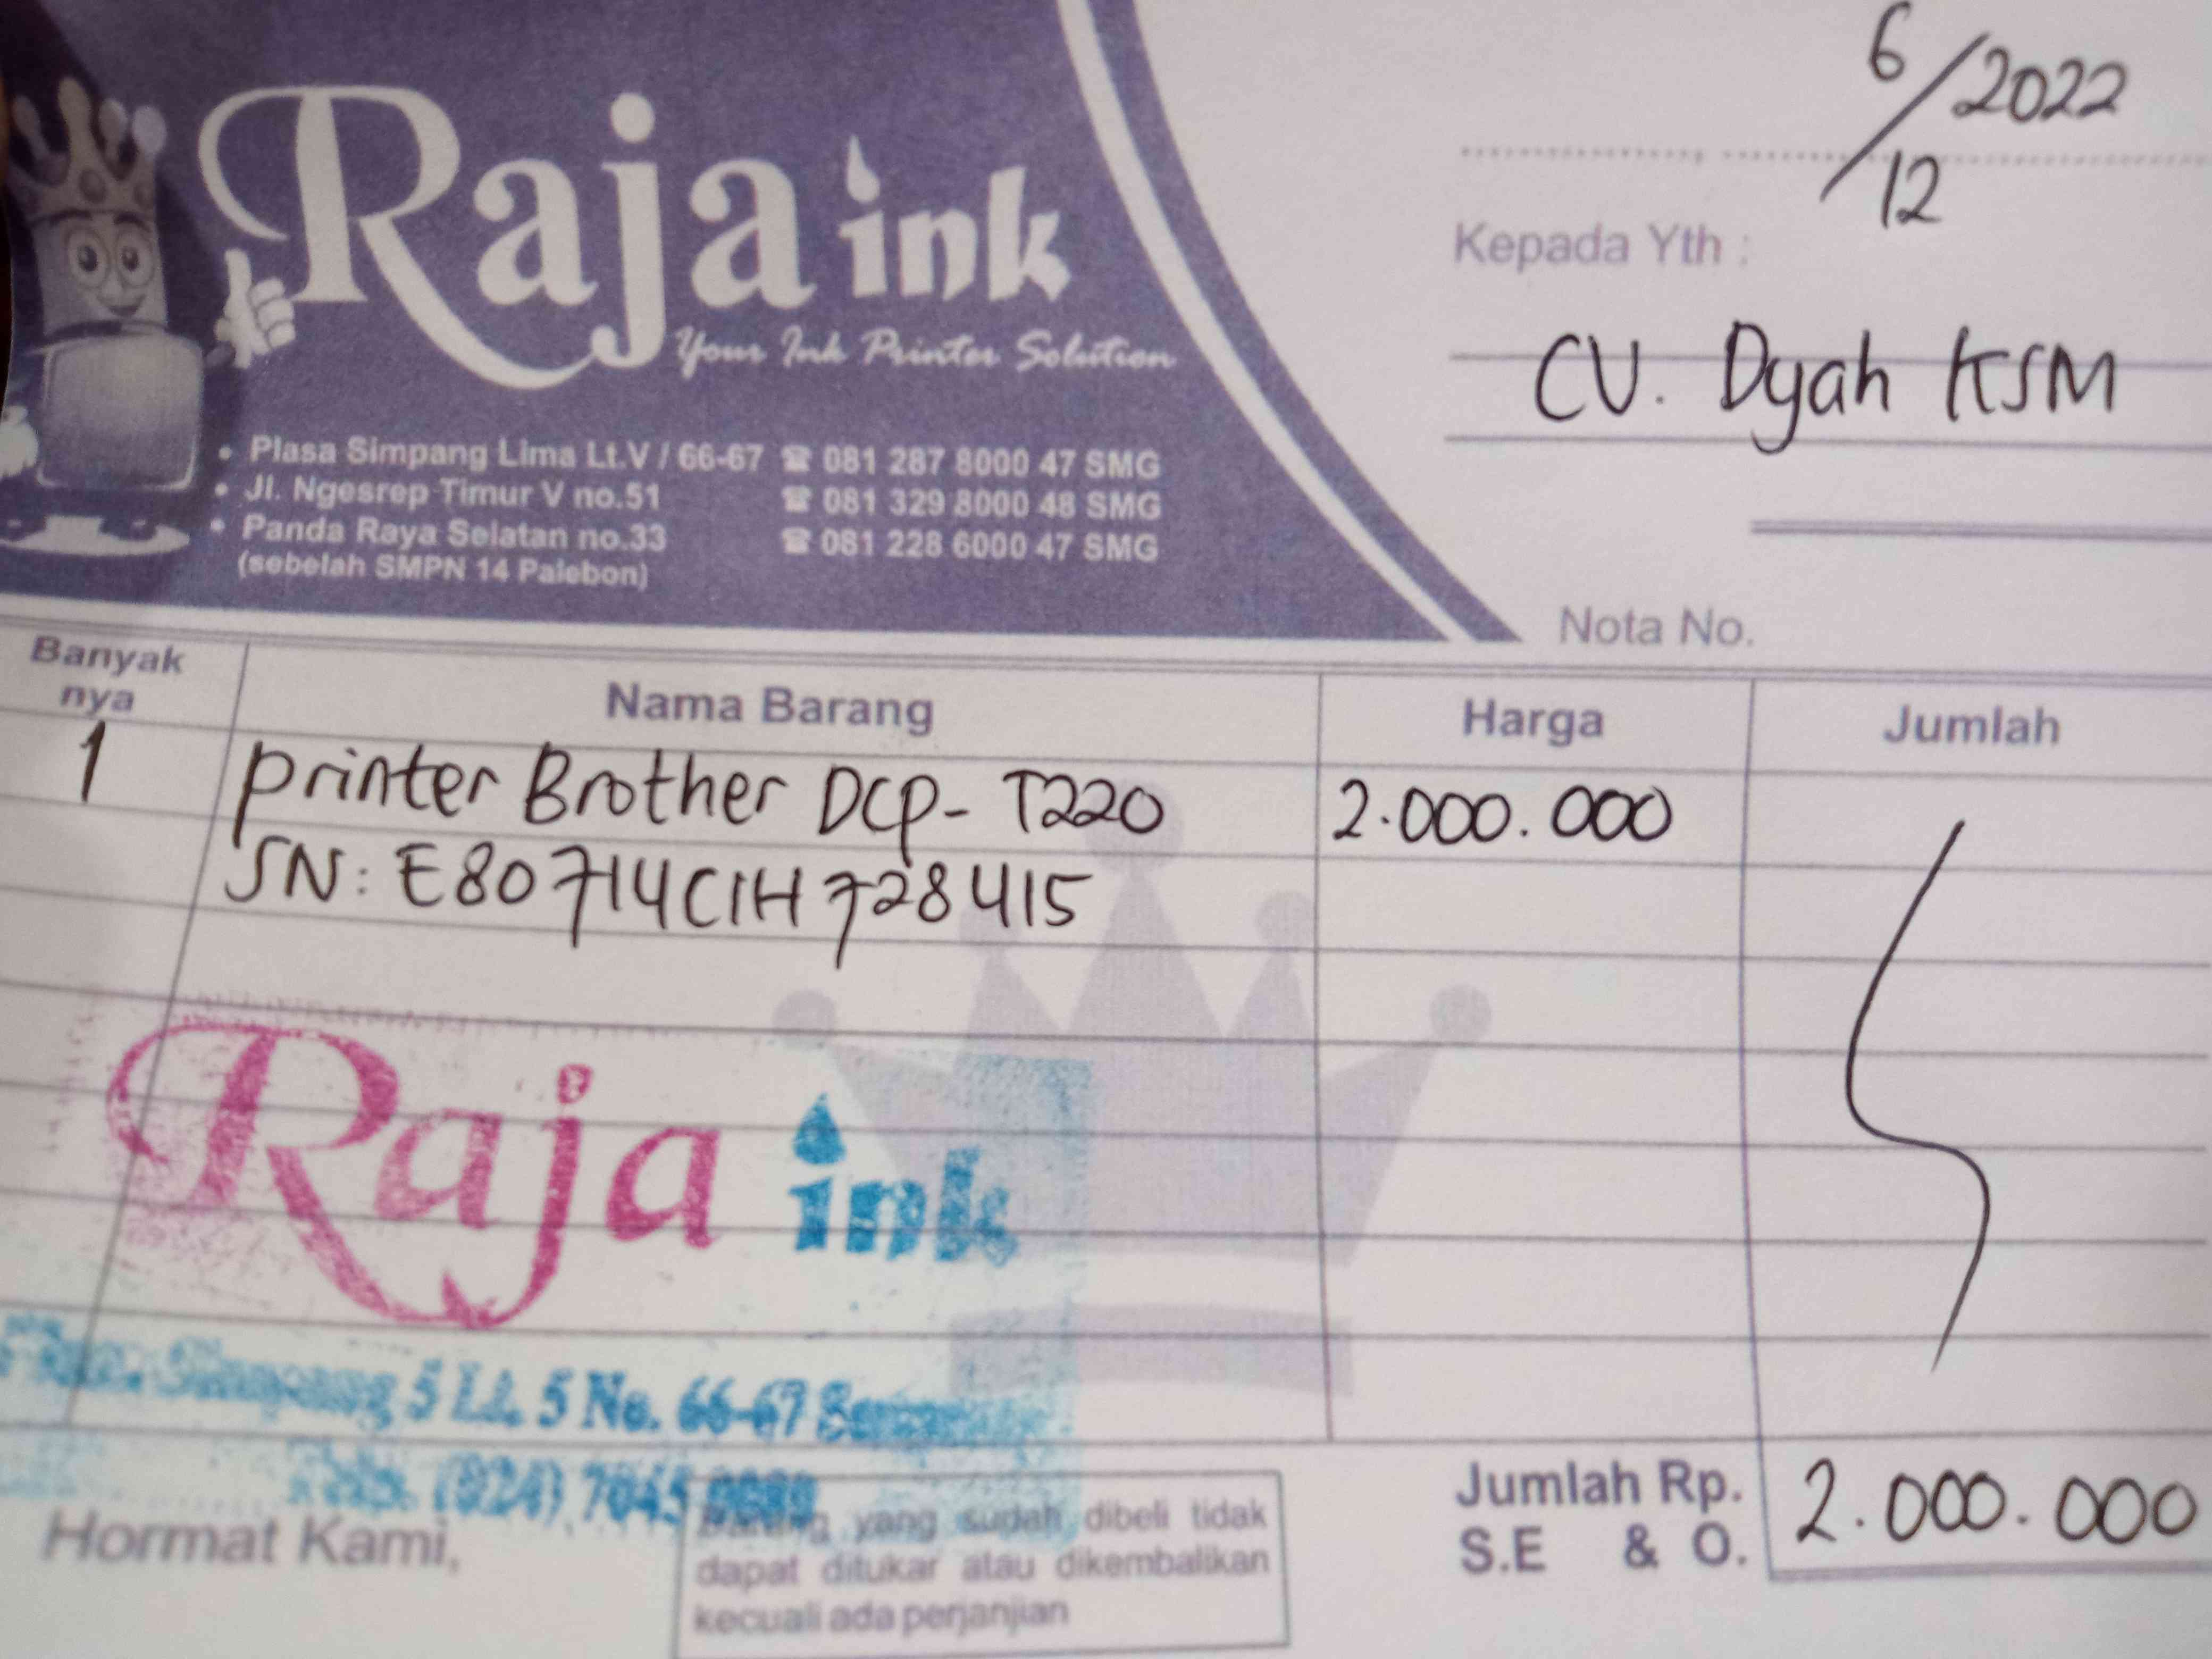 Raja ink
Your Ink Printer Solution
• Plasa Simpang Lima Lt.V / 66-67 ☎ 081 287 8000 47 SMG
• Jl. Ngesrep Timur V no.51 ☎ 081 329 8000 48 SMG
• Panda Raya Selatan no.33 ☎ 081 228 6000 47 SMG
(sebelah SMPN 14 Palebon)
6/12 2022
Kepada Yth :
CV. Dyah KSM
Nota No.
Banyak nya Nama Barang Harga Jumlah
1 printer Brother DCP- T220 2.000.000
SN: E80714C1H728415
Raja ink
Simpang 5 Lt. 5 No. 66-67
(024) 7045
Hormat Kami,
Barang yang sudah dibeli tidak
dapat ditukar atau dikembalikan
kecuali ada perjanjian
Jumlah Rp. 2.000.000
S.E & O.